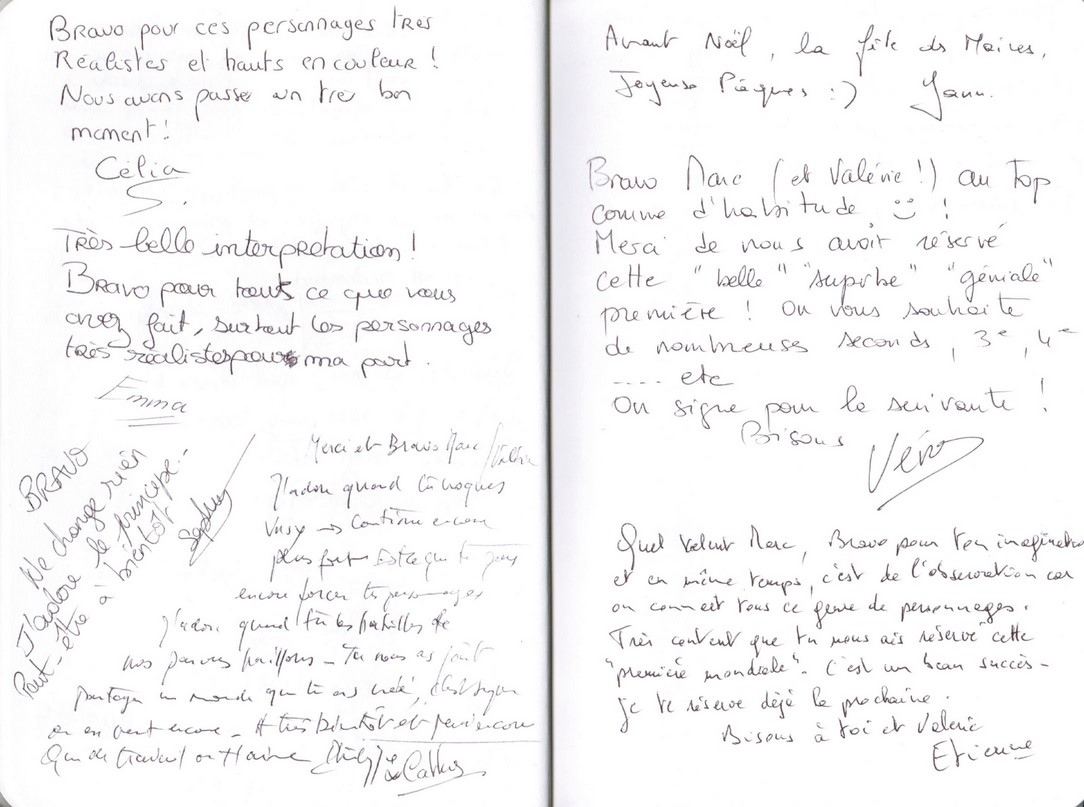 Bravo pour ces personnages très
Réalistes et hauts en couleur !
Nous avons passer un tre bon
moment !
Célia
S.
Très belle interpretation !
Bravo pour touts ce que vous
avez fait, surtout les personnages
très réalistes pour ma part.
Emma
BRAVO
Ne change rien
J'adore le principe...
Peut-être à bientôt
Merci et Bravo Marc /
J'adore quand tu
Vusy → Continue encore
plus fort Est ce que tu peux
encore forcer tes personnages
J'adore quand tu les habilles de
nos pauvres haillons - Tu nous as fait
partager un monde que tu as créé,
on en veut encore - A très bientôt et encore
Que de travail on t'aime
Avant Noël, la fête des Maires,
Joyeuse Pâques :) Yann.
Bravo Marc (et Valérie !) au Top
comme d'habitude !
Merci de nous avoir réservé
cette "belle" "superbe" "géniale"
première ! On vous souhaite
de nombreuses seconds, 3e, 4e
.... etc
On signe pour la suivante !
Bisous Véro
Quel talent Marc, Bravo pour ton imagination
et en même temps, c'est de l'observation car
on connait tous ce genre de personnages.
Très content que tu nous ais réservé cette
"première mondiale". C'est un beau succès -
je te réserve déjà la prochaine.
Bisous à toi et Valerie
Etienne